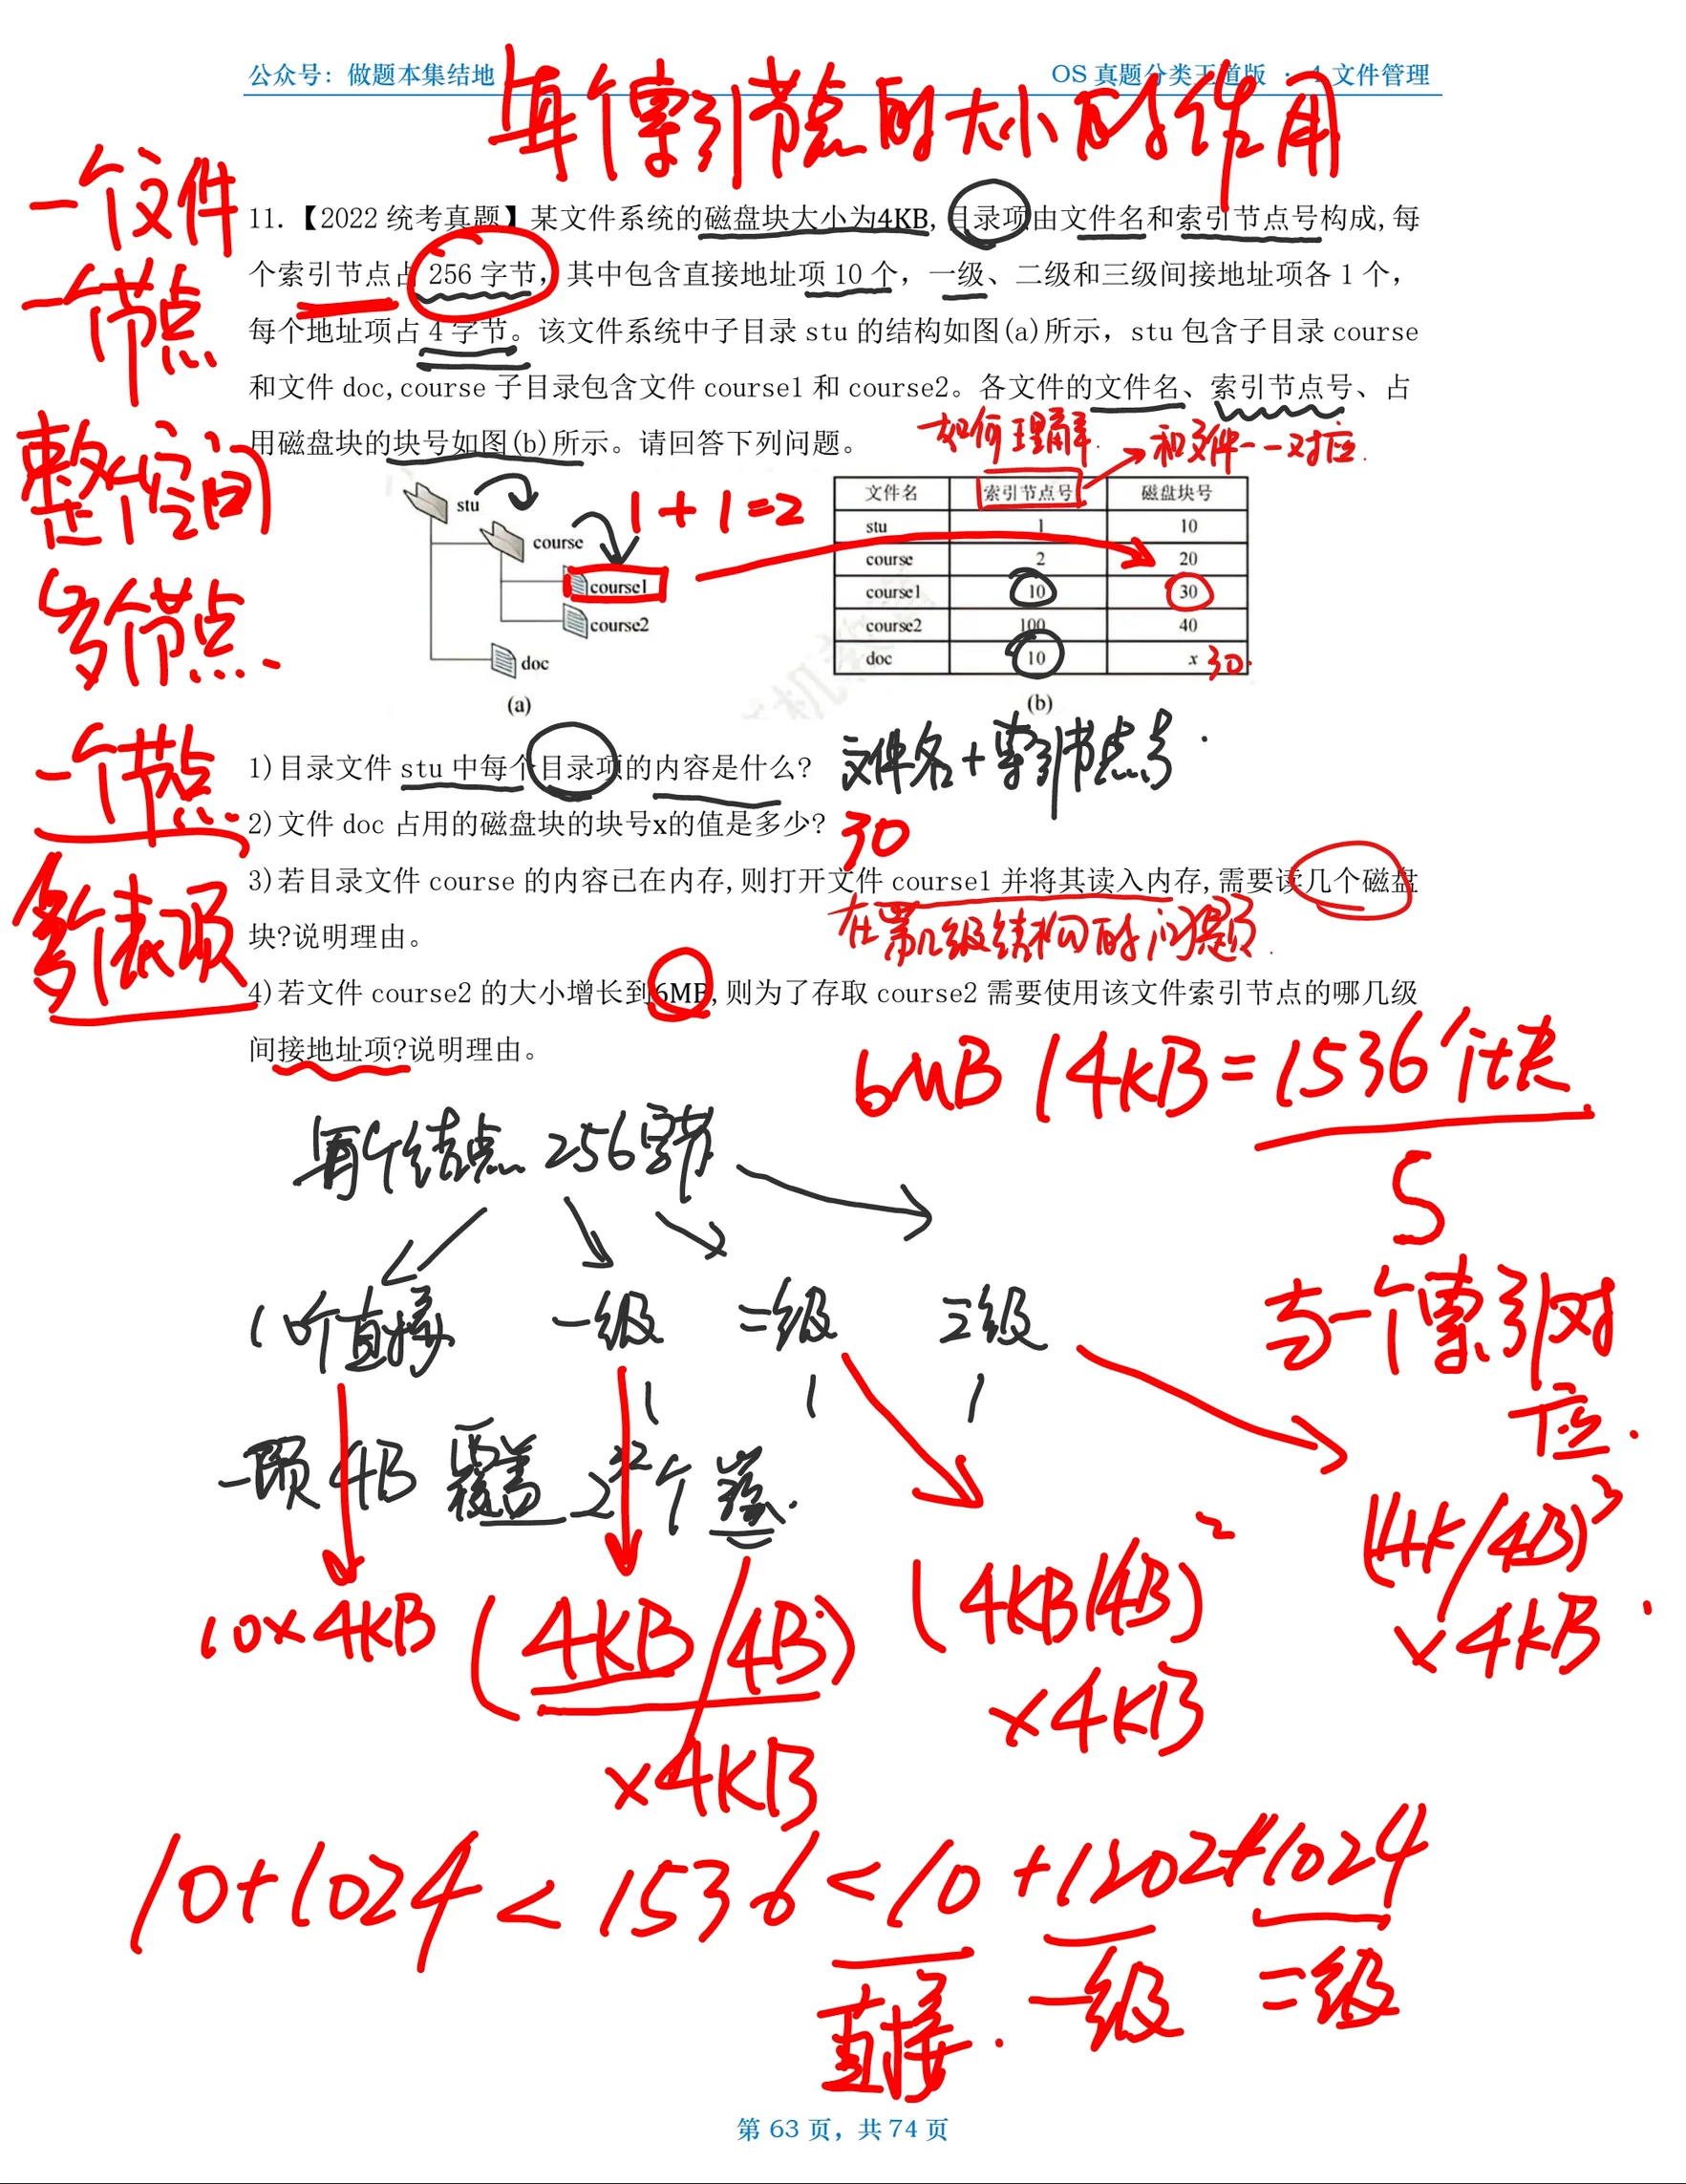 公众号：做题本集结地
OS 真题分类王道版 · 4 文件管理
每个索引节点的大小的作用
一个文件
一个节点
整个空间
多个节点.
一个节点.
多个表项
11.【2022 统考真题】某文件系统的磁盘块大小为4KB,目录项由文件名和索引节点号构成,每
个索引节点占 256 字节，其中包含直接地址项 10 个，一级、二级和三级间接地址项各 1 个，
每个地址项占 4 字节。该文件系统中子目录 stu 的结构如图(a)所示，stu 包含子目录 course
和文件 doc,course 子目录包含文件 course1 和 course2。各文件的文件名、索引节点号、占
用磁盘块的块号如图(b)所示。请回答下列问题。
如何理解.
和文件一一对应.
stu
course
course1
course2
doc
(a)
1+1=2
文件名 索引节点号 磁盘块号
stu 1 10
course 2 20
course1 10 30
course2 100 40
doc 10 x 30.
(b)
1)目录文件 stu 中每个目录项的内容是什么?
文件名+索引节点号.
2)文件 doc 占用的磁盘块的块号x的值是多少?
30
3)若目录文件 course 的内容已在内存,则打开文件 course1 并将其读入内存,需要读几个磁盘
块?说明理由。
在第几级结构的问题.
4)若文件 course2 的大小增长到6MB,则为了存取 course2 需要使用该文件索引节点的哪几级
间接地址项?说明理由。
6MB/4KB=1536个块
每个结点 256字节
10个直接 一级 二级 三级
1 1 1
一项 4B 覆盖 2^32个
与一个索引对
应.
10×4KB
(4KB/4B)
×4KB
(4KB/4B)^2
×4KB
(4K/4B)^3
×4KB.
10+1024<1536<10+1202+1024
直接. 一级 二级
第 63 页，共 74 页